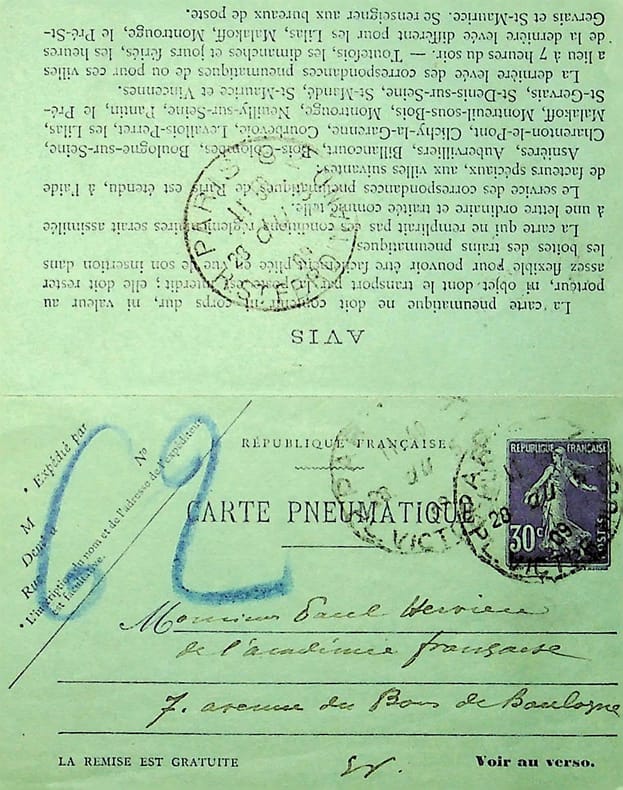 AVIS
La carte pneumatique ne doit contenir ni corps dur, ni valeur au
porteur, ni objet dont le transport par la poste est interdit; elle doit rester
assez flexible pour pouvoir être facilement pliée en vue de son insertion dans
les boîtes des trains pneumatiques.
La carte qui ne remplirait pas des conditions réglementaires serait assimilée
à une lettre ordinaire et traitée comme telle.
Le service des correspondances pneumatiques de Paris est étendu, à l'aide
de facteurs spéciaux, aux villes suivantes:
Asnières, Aubervilliers, Billancourt, Bois-Colombes, Boulogne-sur-Seine,
Charenton-le-Pont, Clichy-la-Garenne, Courbevoie, Levallois-Perret, les Lilas,
Malakoff, Montreuil-sous-Bois, Montrouge, Neuilly-sur-Seine, Pantin, le Pré-
St-Gervais, St-Denis-sur-Seine, St-Mandé, St-Maurice et Vincennes.
La dernière levée des correspondances pneumatiques de ou pour ces villes
a lieu à 7 heures du soir. — Toutefois, les dimanches et jours fériés, les heures
de la dernière levée diffèrent pour les Lilas, Malakoff, Montrouge, le Pré-St-
Gervais et St-Maurice. Se renseigner aux bureaux de poste.
PARIS
28
09
62
• Expédié par
M
N°
Dem
Rue
• L'inscription du nom et de l'adresse de l'expéditeur
est facultative.
RÉPUBLIQUE FRANÇAISE
CARTE PNEUMATIQUE
REPUBLIQUE FRANÇAISE
30c
POSTES
28
PL. VICTO
09
Monsieur Paul Hervieu
de l'académie française
7. avenue du Bois de Boulogne
LA REMISE EST GRATUITE
EV.
Voir au verso.